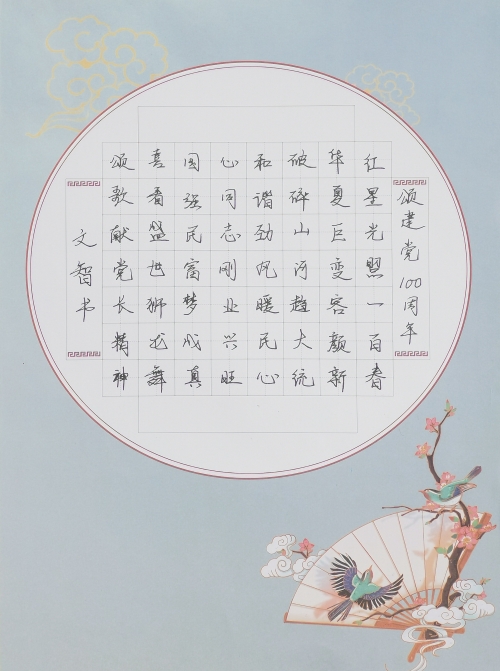 颂建党100周年
红星光照一百春
华夏巨变容颜新
破碎山河趋大统
和谐劲风暖民心
心同志刚业兴旺
国强民富梦成真
喜看盛世狮龙舞
颂歌献党长精神
文智书